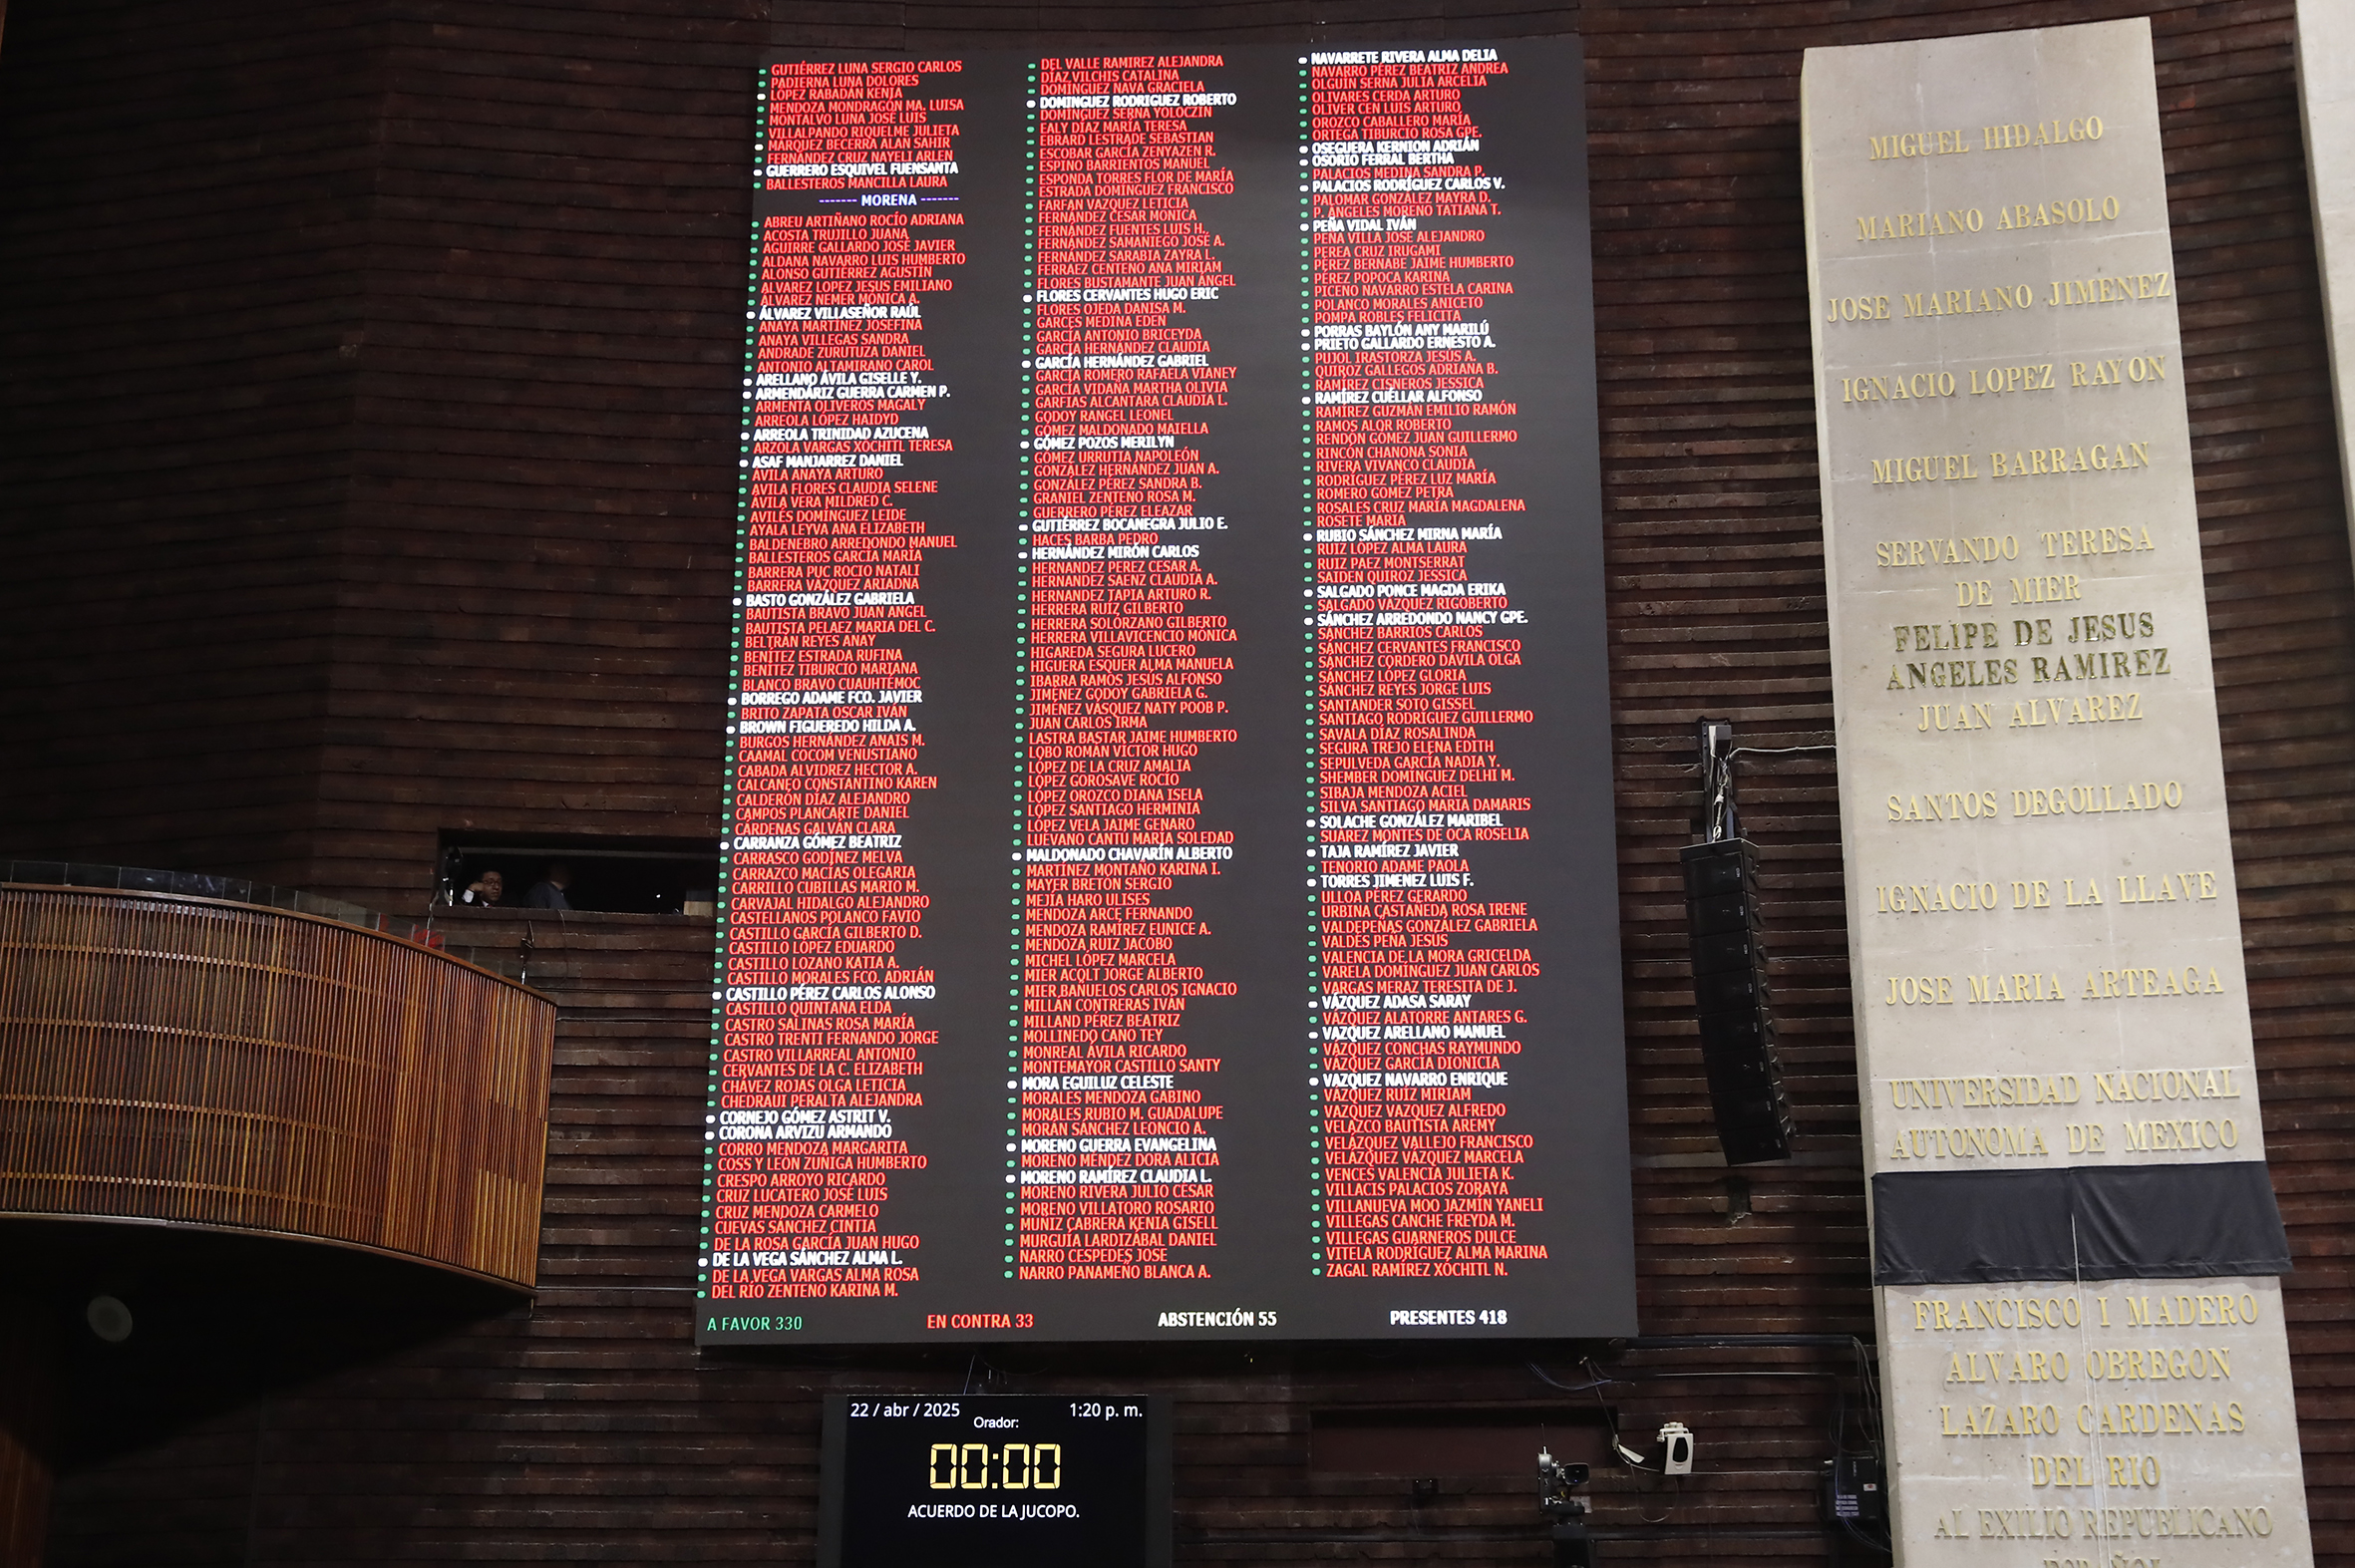 GUTIÉRREZ LUNA SERGIO CARLOS
PADIERNA LUNA DOLORES
LÓPEZ RABADÁN KENIA
MENDOZA MONDRAGÓN MA. LUISA
MONTALVO LUNA JOSÉ LUIS
VILLALPANDO RIQUELME JULIETA
MÁRQUEZ BECERRA ALAN SAHIR
FERNÁNDEZ CRUZ NAYELI ARLEN
GUERRERO ESQUIVEL FUENSANTA
BALLESTEROS MANCILLA LAURA
------- MORENA -------
ABREU ARTIÑANO ROCÍO ADRIANA
ACOSTA TRUJILLO JUANA
AGUIRRE GALLARDO JOSÉ JAVIER
ALDANA NAVARRO LUIS HUMBERTO
ALONSO GUTIÉRREZ AGUSTÍN
ÁLVAREZ LÓPEZ JESÚS EMILIANO
ÁLVAREZ NEMER MÓNICA A.
ÁLVAREZ VILLASEÑOR RAÚL
ANAYA MARTÍNEZ JOSEFINA
ANAYA VILLEGAS SANDRA
ANDRADE ZURUTUZA DANIEL
ANTONIO ALTAMIRANO CAROL
ARELLANO ÁVILA GISELLE Y.
ARMENDÁRIZ GUERRA CARMEN P.
ARMENTA OLIVEROS MAGALY
ARREOLA LÓPEZ HAIDYD
ARREOLA TRINIDAD AZUCENA
ARZOLA VARGAS XÓCHITL TERESA
ASAF MANJARREZ DANIEL
ÁVILA ANAYA ARTURO
ÁVILA FLORES CLAUDIA SELENE
ÁVILA VERA MILDRED C.
AVILÉS DOMÍNGUEZ LEIDE
AYALA LEYVA ANA ELIZABETH
BALDENEBRO ARREDONDO MANUEL
BALLESTEROS GARCÍA MARÍA
BARRERA PUC ROCÍO NATALÍ
BARRERA VÁZQUEZ ARIADNA
BASTO GONZÁLEZ GABRIELA
BAUTISTA BRAVO JUAN ÁNGEL
BAUTISTA PELÁEZ MARÍA DEL C.
BELTRÁN REYES ANAY
BENÍTEZ ESTRADA RUFINA
BENÍTEZ TIBURCIO MARIANA
BLANCO BRAVO CUAUHTÉMOC
BORREGO ADAME FCO. JAVIER
BRITO ZAPATA ÓSCAR IVÁN
BROWN FIGUEREDO HILDA A.
BURGOS HERNÁNDEZ ANAIS M.
CAAMAL COCOM VENUSTIANO
CABADA ALVÍDREZ HÉCTOR A.
CALCÁNEO CONSTANTINO KAREN
CALDERÓN DÍAZ ALEJANDRO
CAMPOS PLANCARTE DANIEL
CÁRDENAS GALVÁN CLARA
CARRANZA GÓMEZ BEATRIZ
CARRASCO GODÍNEZ MELVA
CARRAZCO MACÍAS OLEGARIA
CARRILLO CUBILLAS MARIO M.
CARVAJAL HIDALGO ALEJANDRO
CASTELLANOS POLANCO FAVIO
CASTILLO GARCÍA GILBERTO D.
CASTILLO LÓPEZ EDUARDO
CASTILLO LOZANO KATIA A.
CASTILLO MORALES FCO. ADRIÁN
CASTILLO PÉREZ CARLOS ALONSO
CASTILLO QUINTANA ELDA
CASTRO SALINAS ROSA MARÍA
CASTRO TRENTI FERNANDO JORGE
CASTRO VILLARREAL ANTONIO
CERVANTES DE LA C. ELIZABETH
CHÁVEZ ROJAS OLGA LETICIA
CHEDRAUI PERALTA ALEJANDRA
CORNEJO GÓMEZ ASTRIT V.
CORONA ARVIZU ARMANDO
CORRO MENDOZA MARGARITA
COSS Y LEÓN ZÚÑIGA HUMBERTO
CRESPO ARROYO RICARDO
CRUZ LUCATERO JOSÉ LUIS
CRUZ MENDOZA CARMELO
CUEVAS SÁNCHEZ CINTIA
DE LA ROSA GARCÍA JUAN HUGO
DE LA VEGA SÁNCHEZ ALMA L.
DE LA VEGA VARGAS ALMA ROSA
DEL RÍO ZENTENO KARINA M.
DEL VALLE RAMÍREZ ALEJANDRA
DÍAZ VILCHIS CATALINA
DOMÍNGUEZ NAVA GRACIELA
DOMÍNGUEZ RODRÍGUEZ ROBERTO
DOMÍNGUEZ SERNA YOLOCZIN
EALY DÍAZ MARÍA TERESA
EBRARD LESTRADE SEBASTIÁN
ESCOBAR GARCÍA ZENYAZEN R.
ESPINO BARRIENTOS MANUEL
ESPONDA TORRES FLOR DE MARÍA
ESTRADA DOMÍNGUEZ FRANCISCO
FARFÁN VÁZQUEZ LETICIA
FERNÁNDEZ CÉSAR MÓNICA
FERNÁNDEZ FUENTES LUIS H.
FERNÁNDEZ SAMANIEGO JOSÉ A.
FERNÁNDEZ SARABIA ZAYRA L.
FERRÁEZ CENTENO ANA MIRIAM
FLORES BUSTAMANTE JUAN ÁNGEL
FLORES CERVANTES HUGO ERIC
FLORES OJEDA DANISA M.
GARCÉS MEDINA EDÉN
GARCÍA ANTONIO BRICEYDA
GARCÍA HERNÁNDEZ CLAUDIA
GARCÍA HERNÁNDEZ GABRIEL
GARCÍA ROMERO RAFAELA VIANEY
GARCÍA VIDAÑA MARTHA OLIVIA
GARFIAS ALCÁNTARA CLAUDIA L.
GODOY RANGEL LEONEL
GÓMEZ MALDONADO MAIELLA
GÓMEZ POZOS MERILYN
GÓMEZ URRUTIA NAPOLEÓN
GONZÁLEZ HERNÁNDEZ JUAN A.
GONZÁLEZ PÉREZ SANDRA B.
GRANIEL ZENTENO ROSA M.
GUERRERO PÉREZ ELEAZAR
GUTIÉRREZ BOCANEGRA JULIO E.
HACES BARBA PEDRO
HERNÁNDEZ MIRÓN CARLOS
HERNÁNDEZ PÉREZ CÉSAR A.
HERNÁNDEZ SÁENZ CLAUDIA A.
HERNÁNDEZ TAPIA ARTURO R.
HERRERA RUÍZ GILBERTO
HERRERA SOLÓRZANO GILBERTO
HERRERA VILLAVICENCIO MÓNICA
HIGAREDA SEGURA LUCERO
HIGUERA ESQUER ALMA MANUELA
IBARRA RAMOS JESÚS ALFONSO
JIMÉNEZ GODOY GABRIELA G.
JIMÉNEZ VÁSQUEZ NATY POOB P.
JUAN CARLOS IRMA
LASTRA BASTAR JAIME HUMBERTO
LOBO ROMÁN VÍCTOR HUGO
LÓPEZ DE LA CRUZ AMALIA
LÓPEZ GOROSAVE ROCÍO
LÓPEZ OROZCO DIANA ISELA
LÓPEZ SANTIAGO HERMINIA
LÓPEZ VELA JAIME GENARO
LUÉVANO CANTÚ MARÍA SOLEDAD
MALDONADO CHAVARÍN ALBERTO
MARTÍNEZ MONTAÑO KARINA I.
MAYER BRETÓN SERGIO
MEJÍA HARO ULISES
MENDOZA ARCE FERNANDO
MENDOZA RAMÍREZ EUNICE A.
MENDOZA RUIZ JACOBO
MICHEL LÓPEZ MARCELA
MIER ACOLT JORGE ALBERTO
MIER BAÑUELOS CARLOS IGNACIO
MILLÁN CONTRERAS IVÁN
MILLAND PÉREZ BEATRIZ
MOLLINEDO CANO TEY
MONREAL ÁVILA RICARDO
MONTEMAYOR CASTILLO SANTY
MORA EGUILUZ CELESTE
MORALES MENDOZA GABINO
MORALES RUBIO M. GUADALUPE
MORÁN SÁNCHEZ LEONCIO A.
MORENO GUERRA EVANGELINA
MORENO MÉNDEZ DORA ALICIA
MORENO RAMÍREZ CLAUDIA L.
MORENO RIVERA JULIO CÉSAR
MORENO VILLATORO ROSARIO
MUÑIZ CABRERA KENIA GISELL
MURGUÍA LARDIZÁBAL DANIEL
NARRO CÉSPEDES JOSÉ
NARRO PANAMEÑO BLANCA A.
NAVARRETE RIVERA ALMA DELIA
NAVARRO PÉREZ BEATRIZ ANDREA
OLGUÍN SERNA JULIA ARCELIA
OLIVARES CERDA ARTURO
OLIVER CEN LUIS ARTURO
OROZCO CABALLERO MARÍA
ORTEGA TIBURCIO ROSA GPE.
OSEGUERA KERNION ADRIÁN
OSORIO FERRAL BERTHA
PALACIOS MEDINA SANDRA P.
PALACIOS RODRÍGUEZ CARLOS V.
PALOMAR GONZÁLEZ MAYRA D.
P. ÁNGELES MORENO TATIANA T.
PEÑA VIDAL IVÁN
PEÑA VILLA JOSÉ ALEJANDRO
PEREA CRUZ IRUGAMI
PÉREZ BERNABE JAIME HUMBERTO
PÉREZ POPOCA KARINA
PICENO NAVARRO ESTELA CARINA
POLANCO MORALES ANICETO
POMPA ROBLES FELICITA
PORRAS BAYLÓN ANY MARILÚ
PRIETO GALLARDO ERNESTO A.
PUJOL IRASTORZA JESÚS A.
QUIROZ GALLEGOS ADRIANA B.
RAMÍREZ CISNEROS JESSICA
RAMÍREZ CUÉLLAR ALFONSO
RAMÍREZ GUZMÁN EMILIO RAMÓN
RAMOS ALOR ROBERTO
RENDÓN GÓMEZ JUAN GUILLERMO
RINCÓN CHANONA SONIA
RIVERA VIVANCO CLAUDIA
RODRÍGUEZ PÉREZ LUZ MARÍA
ROMERO GÓMEZ PETRA
ROSALES CRUZ MARÍA MAGDALENA
ROSETE MARÍA
RUBIO SÁNCHEZ MIRNA MARÍA
RUIZ LÓPEZ ALMA LAURA
RUIZ PÁEZ MONTSERRAT
SAIDEN QUIROZ JESSICA
SALGADO PONCE MAGDA ERIKA
SALGADO VÁZQUEZ RIGOBERTO
SÁNCHEZ ARREDONDO NANCY GPE.
SÁNCHEZ BARRIOS CARLOS
SÁNCHEZ CERVANTES FRANCISCO
SÁNCHEZ CORDERO DÁVILA OLGA
SÁNCHEZ LÓPEZ GLORIA
SÁNCHEZ REYES JORGE LUIS
SANTANDER SOTO GISSEL
SANTIAGO RODRÍGUEZ GUILLERMO
SAVALA DÍAZ ROSALINDA
SEGURA TREJO ELENA EDITH
SEPÚLVEDA GARCÍA NADIA Y.
SHEMBER DOMÍNGUEZ DELHI M.
SIBAJA MENDOZA ACIEL
SILVA SANTIAGO MARÍA DAMARIS
SOLACHE GONZÁLEZ MARIBEL
SUÁREZ MONTES DE OCA ROSELIA
TAJA RAMÍREZ JAVIER
TENORIO ADAME PAOLA
TORRES JIMENEZ LUIS F.
ULLOA PÉREZ GERARDO
URBINA CASTAÑEDA ROSA IRENE
VALDEPEÑAS GONZÁLEZ GABRIELA
VALDÉS PEÑA JESÚS
VALENCIA DE LA MORA GRICELDA
VARELA DOMÍNGUEZ JUAN CARLOS
VARGAS MERAZ TERESITA DE J.
VÁZQUEZ ADASA SARAY
VÁZQUEZ ALATORRE ANTARES G.
VÁZQUEZ ARELLANO MANUEL
VÁZQUEZ CONCHAS RAYMUNDO
VÁZQUEZ GARCÍA DIONICIA
VÁZQUEZ NAVARRO ENRIQUE
VÁZQUEZ RUÍZ MIRIAM
VÁZQUEZ VÁZQUEZ ALFREDO
VELAZCO BAUTISTA AREMY
VELÁZQUEZ VALLEJO FRANCISCO
VELÁZQUEZ VÁZQUEZ MARCELA
VENCES VALENCIA JULIETA K.
VILLACIS PALACIOS ZORAYA
VILLANUEVA MOO JAZMÍN YANELI
VILLEGAS CANCHE FREYDA M.
VILLEGAS GUARNEROS DULCE
VITELA RODRÍGUEZ ALMA MARINA
ZAGAL RAMÍREZ XÓCHITL N.
A FAVOR 330 EN CONTRA 33 ABSTENCIÓN 55 PRESENTES 418
22 / abr / 2025 1:20 p. m.
Orador:
00:00
ACUERDO DE LA JUCOPO.
MIGUEL HIDALGO
MARIANO ABASOLO
JOSE MARIANO JIMENEZ
IGNACIO LOPEZ RAYON
MIGUEL BARRAGAN
SERVANDO TERESA
DE MIER
FELIPE DE JESUS
ANGELES RAMIREZ
JUAN ALVAREZ
SANTOS DEGOLLADO
IGNACIO DE LA LLAVE
JOSE MARIA ARTEAGA
UNIVERSIDAD NACIONAL
AUTONOMA DE MEXICO
FRANCISCO I MADERO
ALVARO OBREGON
LAZARO CARDENAS
DEL RIO
AL EXILIO REPUBLICANO
ESPAÑOL